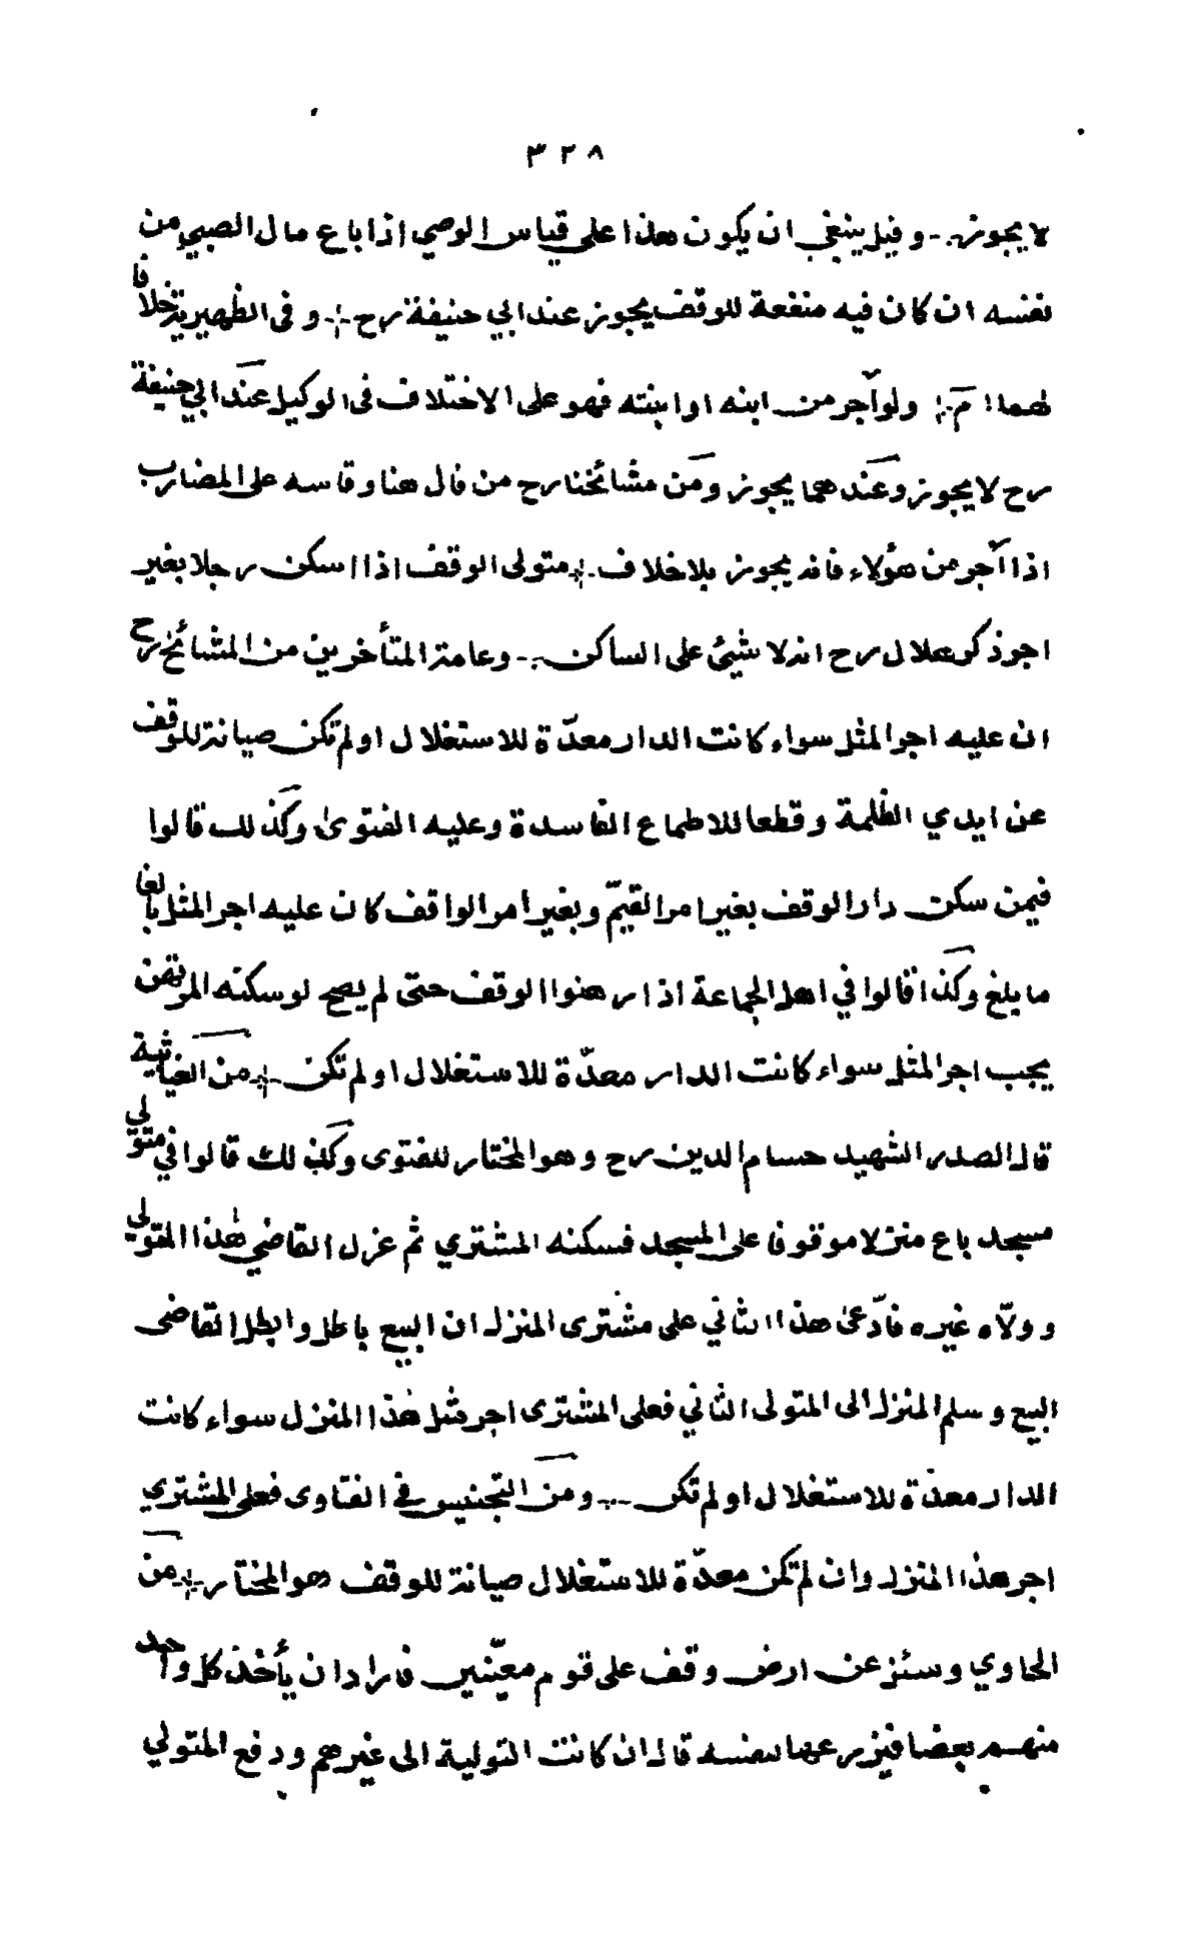 ٣٢٨
لا يجوز ∴ وقيل ينبغي ان يكون هذا على قياس الوصي اذا باع مال الصبي من
نفسه ان كان فيه منفعة للوقف يجوز عند ابي حنيفة رح ∴ و فى الظهيرية خلافا
لهما ∴ م ∴ ولو آجر من ابنه او ابنته فهو على الاختلاف فى الوكيل عند ابي حنيفة
رح لا يجوز وعند هما يجوز ومن مشائخنا رح من قال هنا وقاسه على المضارب
اذا آجر من هؤلاء فانه يجوز بلا خلاف ∴ متولى الوقف اذا اسكن رجلا بغير
اجر ذكر هلال رح انه لا شيئ على الساكن ∴ وعامة المتأخرين من المشائخ رح
ان عليه اجر المثل سواء كانت الدار معدّة للاستغلال او لم تكن صيانة للوقف
عن ايدي الظلمة وقطعا للاطماع الفاسدة وعليه الفتوى وكذلك قالوا
فيمن سكن دار الوقف بغير امر القيّم وبغير امر الواقف كان عليه اجر المثل بالغا
ما بلغ وكذا قالوا في اهل الجماعة اذا رهنوا الوقف حتى لم يصح لو سكنه المرتهن
يجب اجر المثل سواء كانت الدار معدّة للاستغلال او لم تكن ∴ من الغياثية
قال الصدر الشهيد حسام الدين رح وهو المختار للفتوى وكذلك قالوا في متولي
مسجد باع منزلا موقوفا على المسجد فسكنه المشتري ثم عزل القاضي هذا المتولي
وولّاه غيره فادّعى هذا الثاني على مشترى المنزل ان البيع باطل وابطل القاضى
البيع وسلم المنزل الى المتولى الثاني فعلى المشترى اجر مثل هذا المنزل سواء كانت
الدار معدّة للاستغلال او لم تكن ∴ ومن التجنيس فى الفتاوى فعلى المشتري
اجر هذا المنزل وان لم تكن معدّة للاستغلال صيانة للوقف هو المختار ∴ من
الحاوي وسئل عن ارض وقف على قوم معيّنين فاراد ان يأخذ كل واحد
منهم بعضا فيزرعها لنفسه قال ان كانت التولية الى غيرهم ودفع المتولي